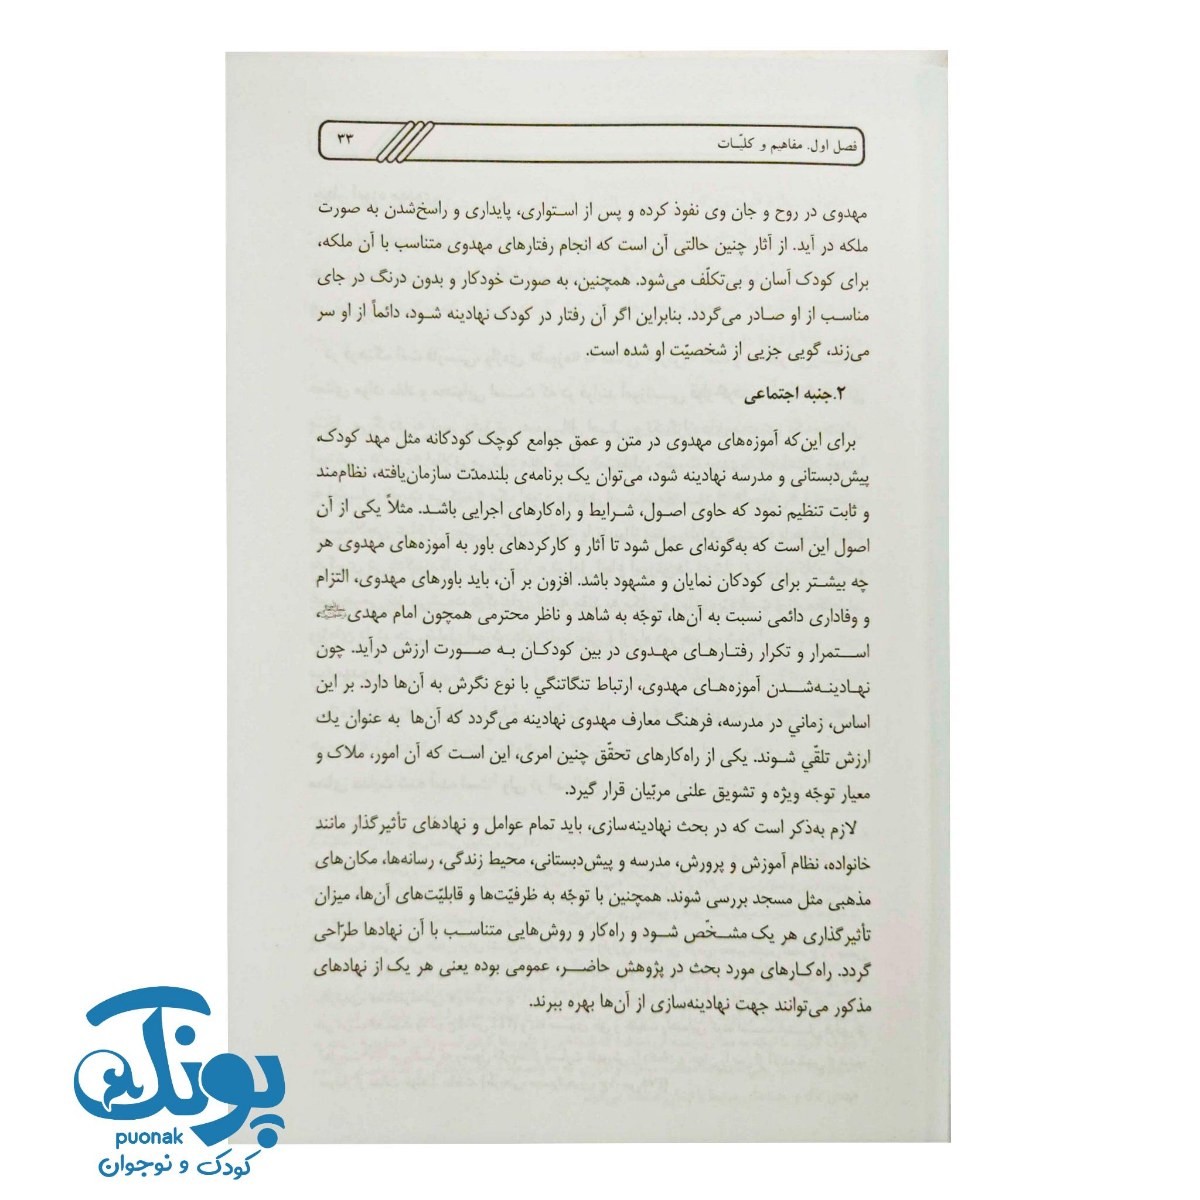 فصل اول. مفاهیم و کلیّات ۳۳
مهدوی در روح و جان وی نفوذ کرده و پس از استواری، پایداری و راسخ‌شدن به صورت
ملکه در آید. از آثار چنین حالتی آن است که انجام رفتارهای مهدوی متناسب با آن ملکه،
برای کودک آسان و بی‌تکلّف می‌شود. همچنین، به صورت خودکار و بدون درنگ در جای
مناسب از او صادر می‌گردد. بنابراین اگر آن رفتار در کودک نهادینه شود، دائماً از او سر
می‌زند، گویی جزیی از شخصیّت او شده است.
۲.جنبه اجتماعی
برای این‌که آموزه‌های مهدوی در متن و عمق جوامع کوچک کودکانه مثل مهد کودک،
پیش‌دبستانی و مدرسه نهادینه شود، می‌توان یک برنامه‌ی بلندمدّت سازمان‌یافته، نظام‌مند
و ثابت تنظیم نمود که حاوی اصول، شرایط و راه‌کارهای اجرایی باشد. مثلاً یکی از آن
اصول این است که به‌گونه‌ای عمل شود تا آثار و کارکردهای باور به آموزه‌های مهدوی هر
چه بیشتر برای کودکان نمایان و مشهود باشد. افزون بر آن، باید باورهای مهدوی، التزام
و وفاداری دائمی نسبت به آن‌ها، توجّه به شاهد و ناظر محترمی همچون امام مهدی،
استمرار و تکرار رفتارهای مهدوی در بین کودکان به صورت ارزش درآید. چون
نهادینه‌شدن آموزه‌های مهدوی، ارتباط تنگاتنگي با نوع نگرش به آن‌ها دارد. بر این
اساس، زماني در مدرسه، فرهنگ معارف مهدوی نهادینه می‌گردد که آن‌ها به عنوان یك
ارزش تلقّي شوند. یکی از راه‌کارهای تحقّق چنین امری، این است که آن امور، ملاک و
معیار توجّه ویژه و تشویق علنی مربّیان قرار گیرد.
لازم به‌ذکر است که در بحث نهادینه‌سازی، باید تمام عوامل و نهادهای تأثیرگذار مانند
خانواده، نظام آموزش و پرورش، مدرسه و پیش‌دبستانی، محیط زندگی، رسانه‌ها، مکان‌های
مذهبی مثل مسجد بررسی شوند. همچنین با توجّه به ظرفیّت‌ها و قابلیّت‌های آن‌ها، میزان
تأثیرگذاری هر یک مشخّص شود و راه‌کار و روش‌هایی متناسب با آن نهادها طرّاحی
گردد. راه‌کارهای مورد بحث در پژوهش حاضر، عمومی بوده یعنی هر یک از نهادهای
مذکور می‌توانند جهت نهادینه‌سازی از آن‌ها بهره ببرند.
پونک
puonak
کودک و نوجوان